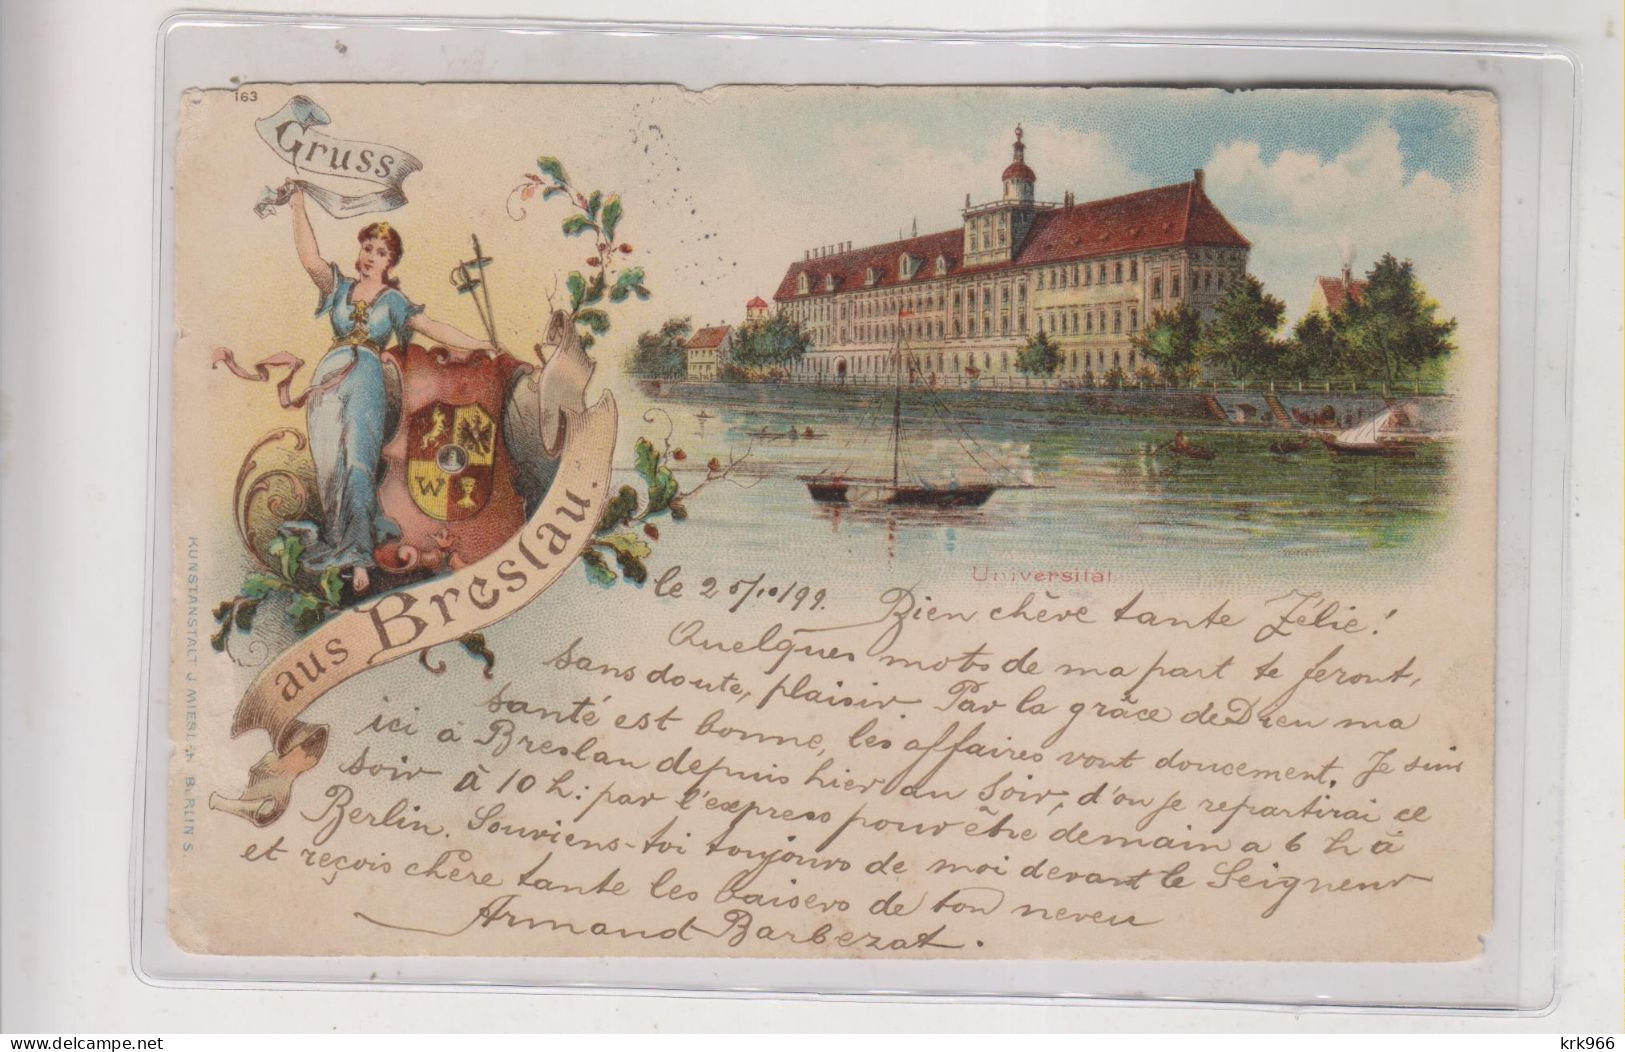 163
Gruss
aus Breslau.
W
KUNSTANSTALT J. MIESLER BERLIN S.
Universität
le 25/10/99. Bien chère tante Zélie!
Quelques mots de ma part te feront,
sans doute, plaisir. Par la grâce de Dieu ma
santé est bonne, les affaires vont doucement. Je suis
ici à Breslau depuis hier au soir, d'ou je repartirai ce
soir à 10 h: par l'express pour être demain a 6 h à
Berlin. Souviens-toi toujours de moi devant le Seigneur
et reçois chère tante les baisers de ton neveu
Armand Barbezat.
krk966
delcampe.net